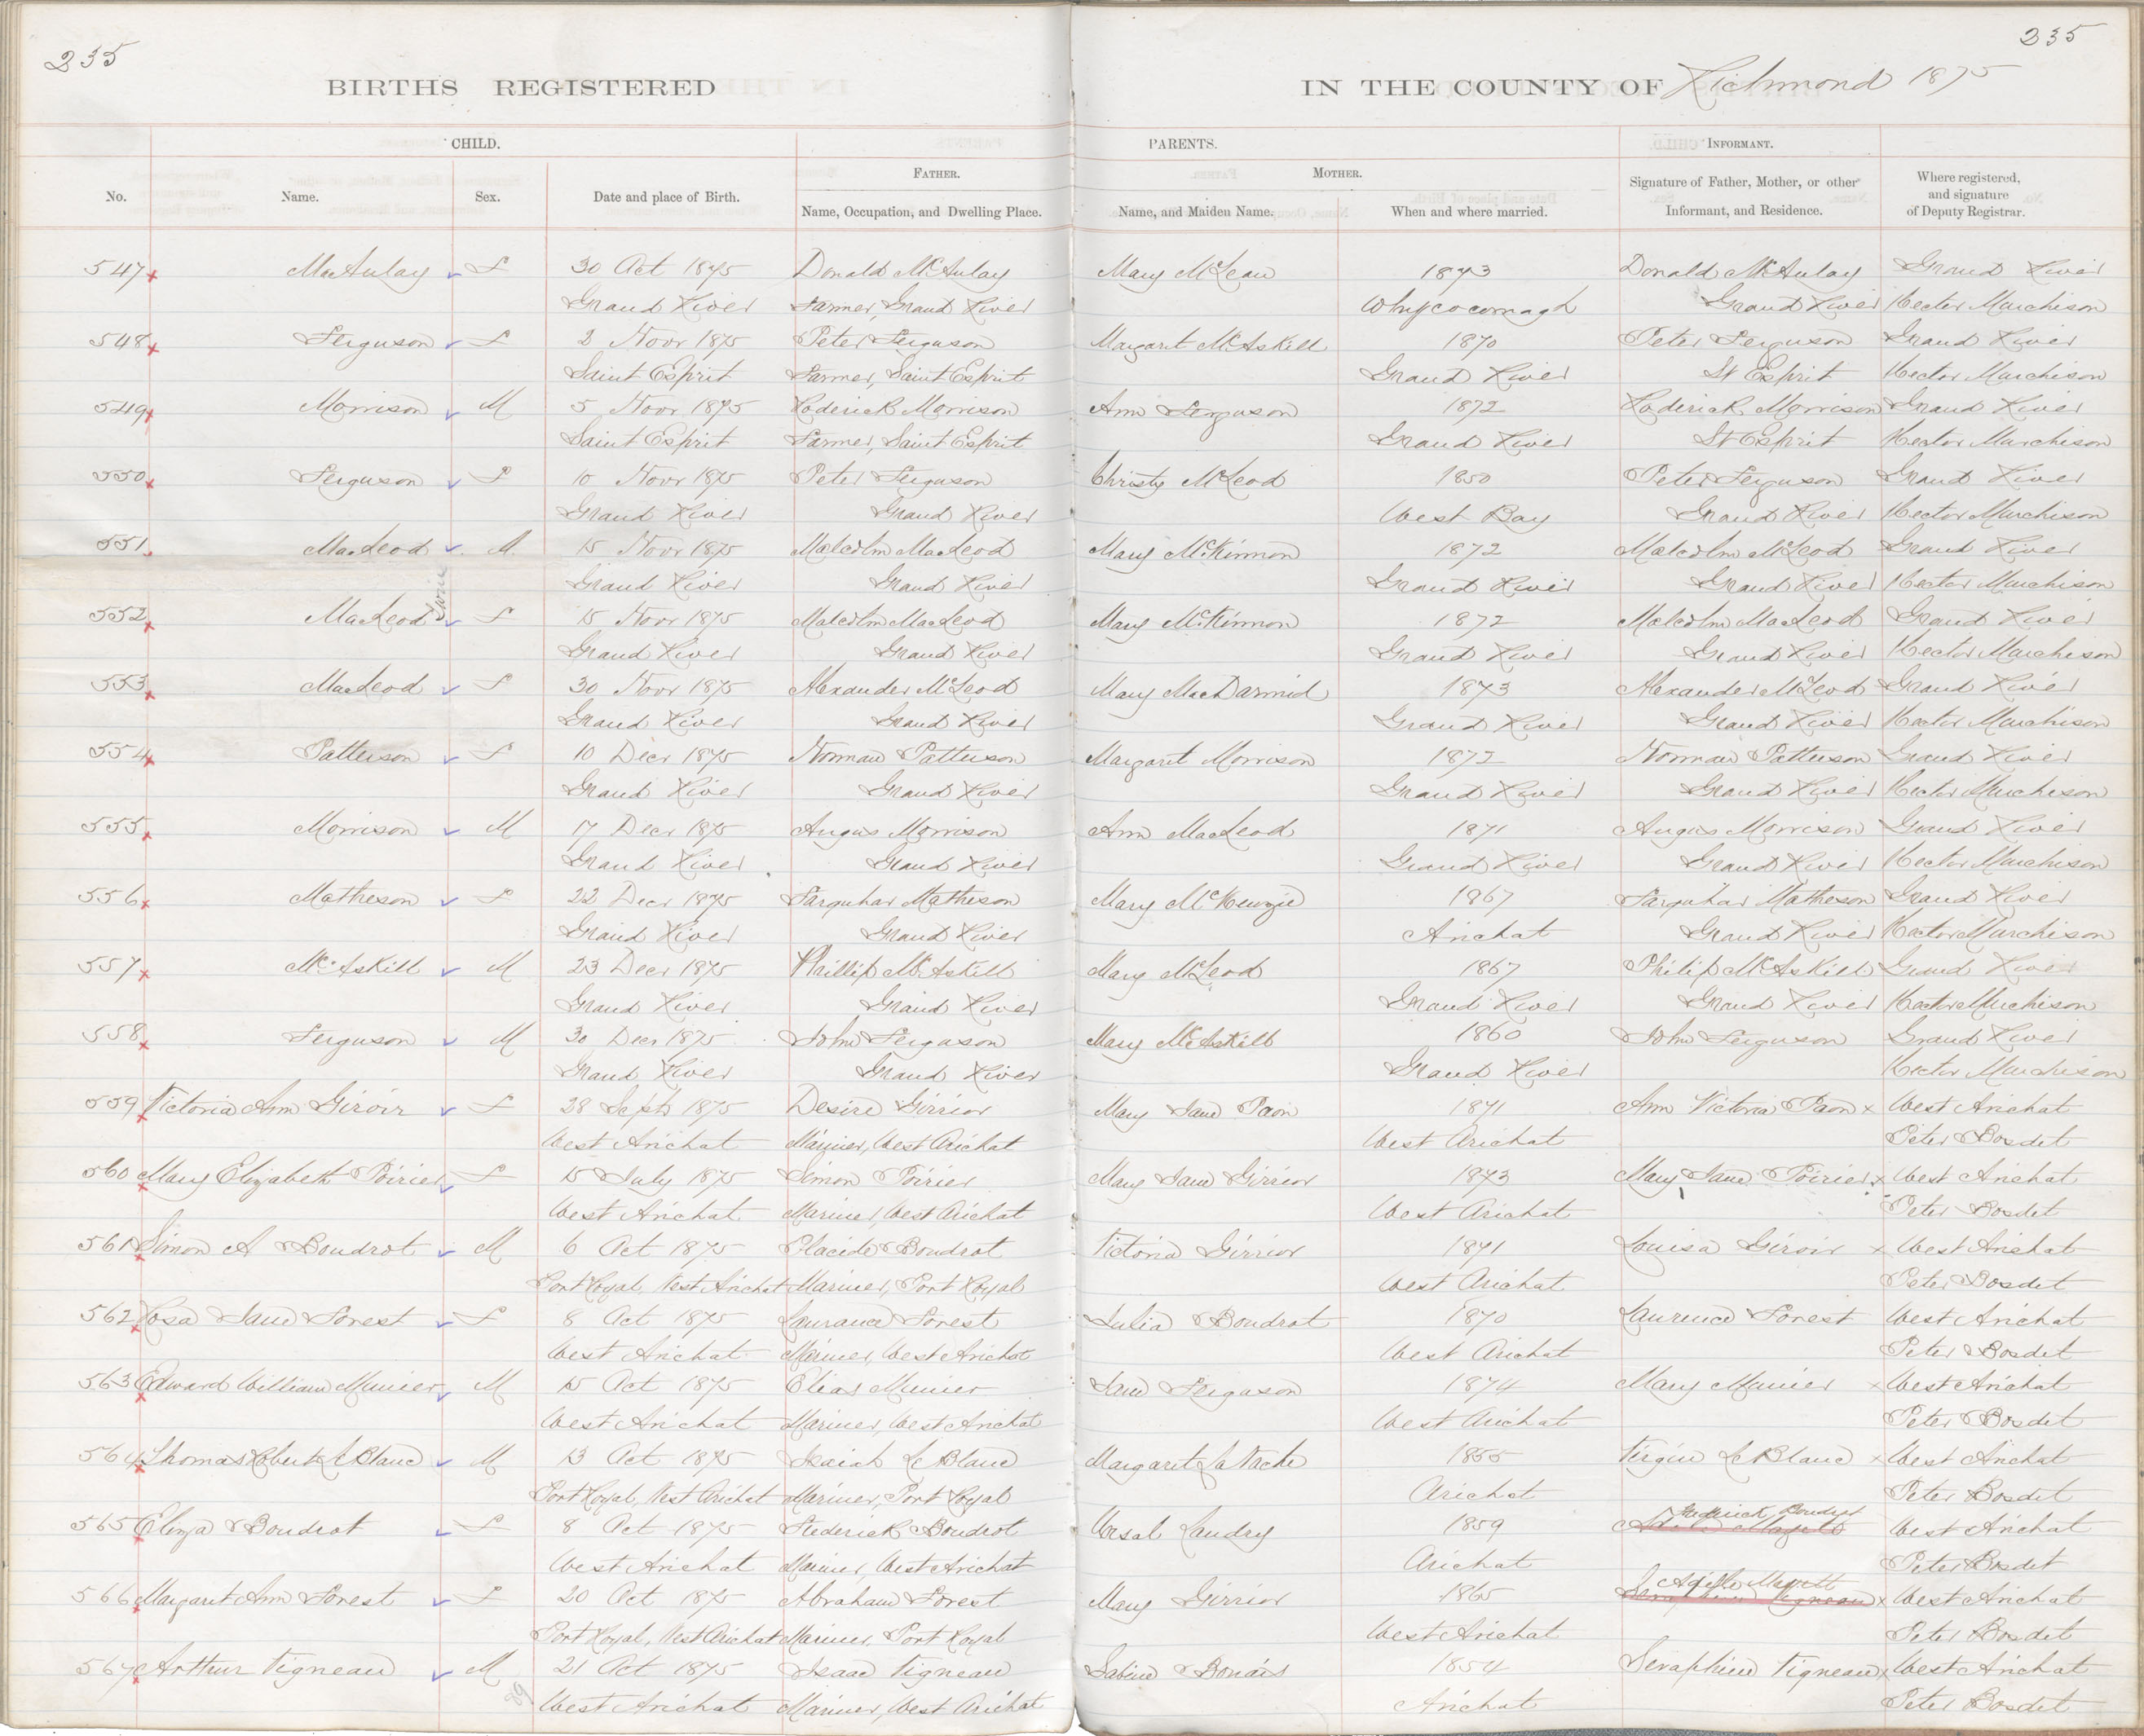 235 235
BIRTHS REGISTERED IN THE COUNTY OF Richmond 1875
CHILD. PARENTS. INFORMANT.
No. Name. Sex. Date and place of Birth. FATHER. Name, Occupation, and Dwelling Place. MOTHER. Name, and Maiden Name. When and where married. Signature of Father, Mother, or other Informant, and Residence. Where registered, and signature of Deputy Registrar.
547 MacAulay f 30 Oct 1875 Donald McAulay Mary McLean 1873 Donald McAulay Grand River
Grand River Farmer, Grand River Whycocomagh Grand River Hector Murchison
548 Ferguson f 2 Novr 1875 Peter Ferguson Margaret McAskill 1870 Peter Ferguson Grand River
Saint Esprit Farmer, Saint Esprit Grand River St Esprit Hector Murchison
549 Morrison M 5 Novr 1875 Roderick Morrison Ann Ferguson 1872 Roderick Morrison Grand River
Saint Esprit Farmer, Saint Esprit Grand River St Esprit Hector Murchison
550 Ferguson f 10 Novr 1875 Peter Ferguson Christy McLeod 1850 Peter Ferguson Grand River
Grand River Grand River West Bay Grand River Hector Murchison
551 MacLeod M 15 Novr 1875 Malcolm MacLeod Mary McKinnon 1872 Malcolm McLeod Grand River
Grand River Grand River Grand River Grand River Hector Murchison
552 MacLeod f 15 Novr 1875 Malcolm MacLeod Mary McKinnon 1872 Malcolm MacLeod Grand River
Grand River Grand River Grand River Grand River Hector Murchison
553 MacLeod f 30 Novr 1875 Alexander McLeod Mary MacDarmid 1873 Alexander McLeod Grand River
Grand River Grand River Grand River Grand River Hector Murchison
554 Patterson f 10 Decr 1875 Norman Patterson Margaret Morrison 1872 Norman Patterson Grand River
Grand River Grand River Grand River Grand River Hector Murchison
555 Morrison M 17 Decr 1875 Angus Morrison Ann MacLeod 1871 Angus Morrison Grand River
Grand River Grand River Grand River Grand River Hector Murchison
556 Matheson f 22 Decr 1875 Farquhar Matheson Mary McKenzie 1867 Farquhar Matheson Grand River
Grand River Grand River Arichat Grand River Hector Murchison
557 McAskill M 23 Decr 1875 Phillip McAskill Mary McLeod 1867 Philip McAskill Grand River
Grand River Grand River Grand River Grand River Hector Murchison
558 Ferguson M 30 Decr 1875 John Ferguson Mary McAskill 1860 John Ferguson Grand River
Grand River Grand River Grand River Hector Murchison
559 Victoria Ann Giroir f 28 Sept 1875 Desire Girrior Mary Jane Paon 1871 Ann Victoria Paon x West Arichat
West Arichat Mariner, West Arichat West Arichat Peter Bosdet
560 Mary Elizabeth Poirier f 15 July 1875 Simon Poirier Mary Jane Girrior 1873 Mary Jane Poirier x West Arichat
West Arichat Mariner, West Arichat West Arichat Peter Bosdet
561 Simon A Boudrot M 6 Oct 1875 Placide Boudrot Victoria Girrior 1871 Louisa Giroir x West Arichat
Port Royal, West Arichat Mariner, Port Royal West Arichat Peter Bosdet
562 Rosa Jane Forest f 8 Oct 1875 Laurance Forest Julia Boudrot 1870 Laurence Forest West Arichat
West Arichat Mariner, West Arichat West Arichat Peter Bosdet
563 Edward William Munier M 15 Oct 1875 Elias Munier Jane Ferguson 1874 Mary Munier x West Arichat
West Arichat Mariner, West Arichat West Arichat Peter Bosdet
564 Thomas Robert LeBlanc M 13 Oct 1875 Isaiah LeBlanc Margaret LaVache 1855 Virgin LeBlanc x West Arichat
Port Royal, West Arichat Mariner, Port Royal Arichat Peter Bosdet
565 Eliza Boudrot f 8 Oct 1875 Frederick Boudrot Ursal Landry 1859 Frederick Boudrot West Arichat
West Arichat Mariner, West Arichat Arichat Peter Bosdet
566 Margaret Ann Forest f 20 Oct 1875 Abraham Forest Mary Girrior 1865 x West Arichat
Port Royal, West Arichat Mariner, Port Royal West Arichat Peter Bosdet
567 Arthur Vigneau M 21 Oct 1875 Isaac Vigneau Sabine Bonais 1854 Seraphine Vigneau x West Arichat
West Arichat Mariner, West Arichat Arichat Peter Bosdet